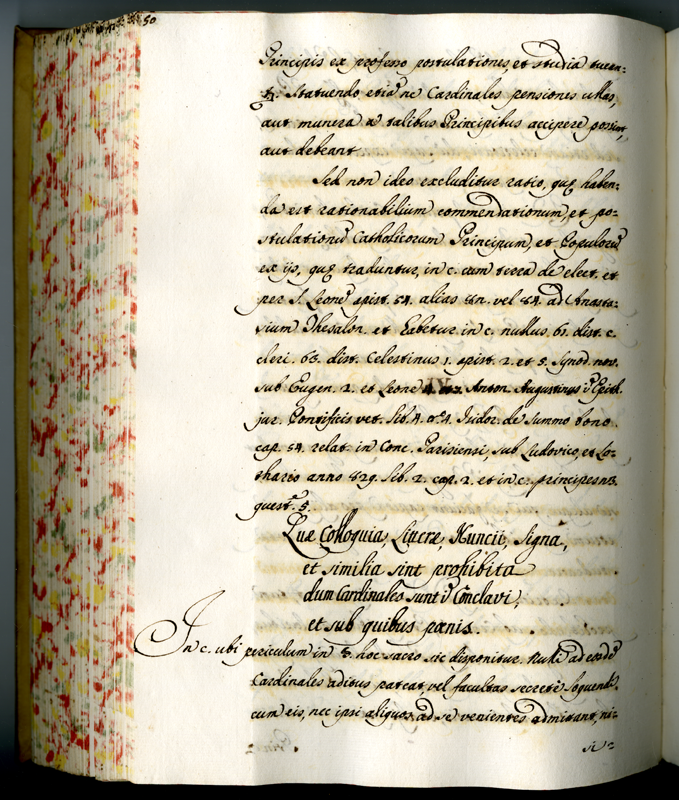 50
Principis ex professo postulationes, et studia tuean-
tr. Statuendo etiā ne Cardinales pensiones ullas,
aut munera a talibus Principibus accipere possint,
aut debeant
Sed non ideo excluditur ratio, quę haben-
da est rationabilium commendationum, et po-
stulationū Catholicorum Principum, et Populorū
ex ijs, quę traduntur, in c. cum terra de elect. et
per S. Leonē epist. 54. alias 8n. vel 84. ad Anasta-
sium Thesalon. et habetur in c. nullus. 61. dist. c.
cleri. 63. dist. Celestinus 1. epist. 2. et 5. Synod. nov.
sub Eugen. 2. et Leone Anton. Augustinus ī Epit.
jur. Pontificis vet. lib. 4. Isidor. de Summo bono
cap. 54. relat. in Conc. Parisiensi, sub Ludovico, et Lo-
thario anno 829. lib. 2. cap. 2. et in c. principes n3.
quest. 5.
Quę Colloquia, Literę, Nuncii, Signa,
et similia sint prohibita
dum Cardinales sunt ī Conclavi,
et sub quibus pœnis.
In c. ubi periculum in §. hoc sacro sic disponitur. Nulli ad eosdē
Cardinales aditus pateat, vel facultas secretè loquendi
cum eis, nec ipsi aliquos ad se venientes admittant, ni-
si